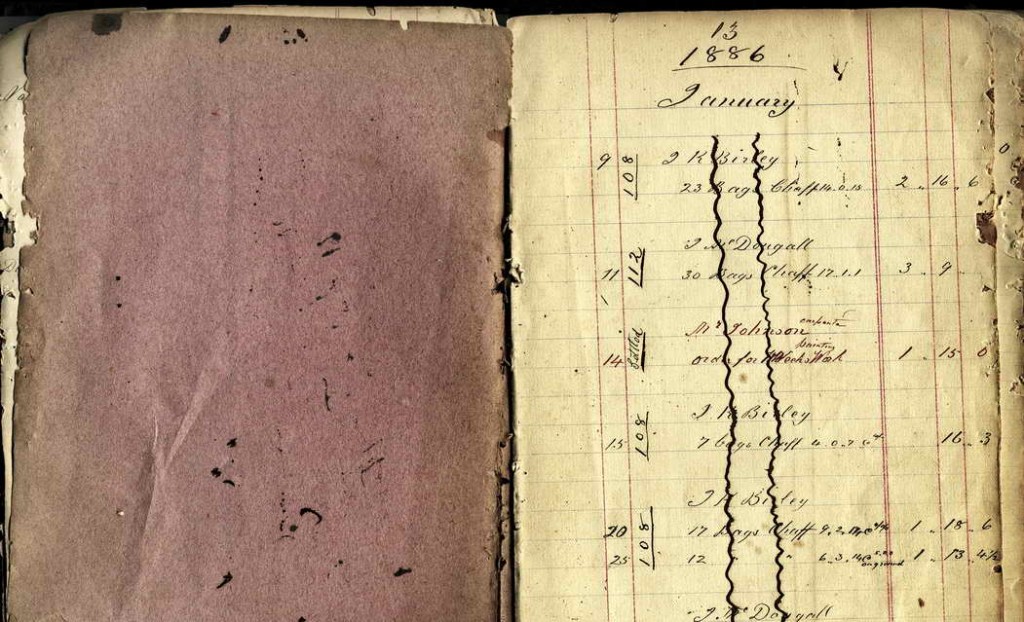 13
1886
January
9 108 J K Birley
23 Bags Chaff 14.0.13 2 „ 16 „ 6
J McDougall
11 112 30 Bags Chaff 17.1.1 3 „ 9 „
Mr Johnson carpenter
Painting
14 Settled order for Weeks Work 1 „ 15 0
J K Birley
15 108 7 bags Chaff 4.0.7 16 „ 3
J K Birley
20 108 17 Bags Chaff 9.2.14 1 „ 18 „ 6
25 12 „ „ 6.3.14 1 „ 13 „ 4½
J McDougall